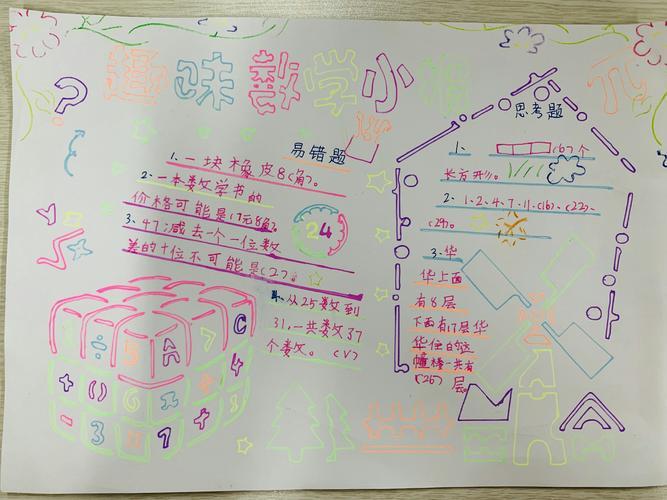 趣味数学小报
易错题
1、一块橡皮8(角)。
2、一本数学书的
价格可能是17元8角。
3、47减去一个一位数
差的十位不可能是(2)。
4、从25数到
31,一共数37
个数。(√)
24
思考题
1、(6)个
长方形。
2、1、2、4、7、11、(16)、(22)、
(29)。
3、华
华上面
有8层
下面有17层华
华住的这
幢楼一共有
(26)层。
÷ 5 A 7 C
+ 0 6 2 4
- 3 1 7 +